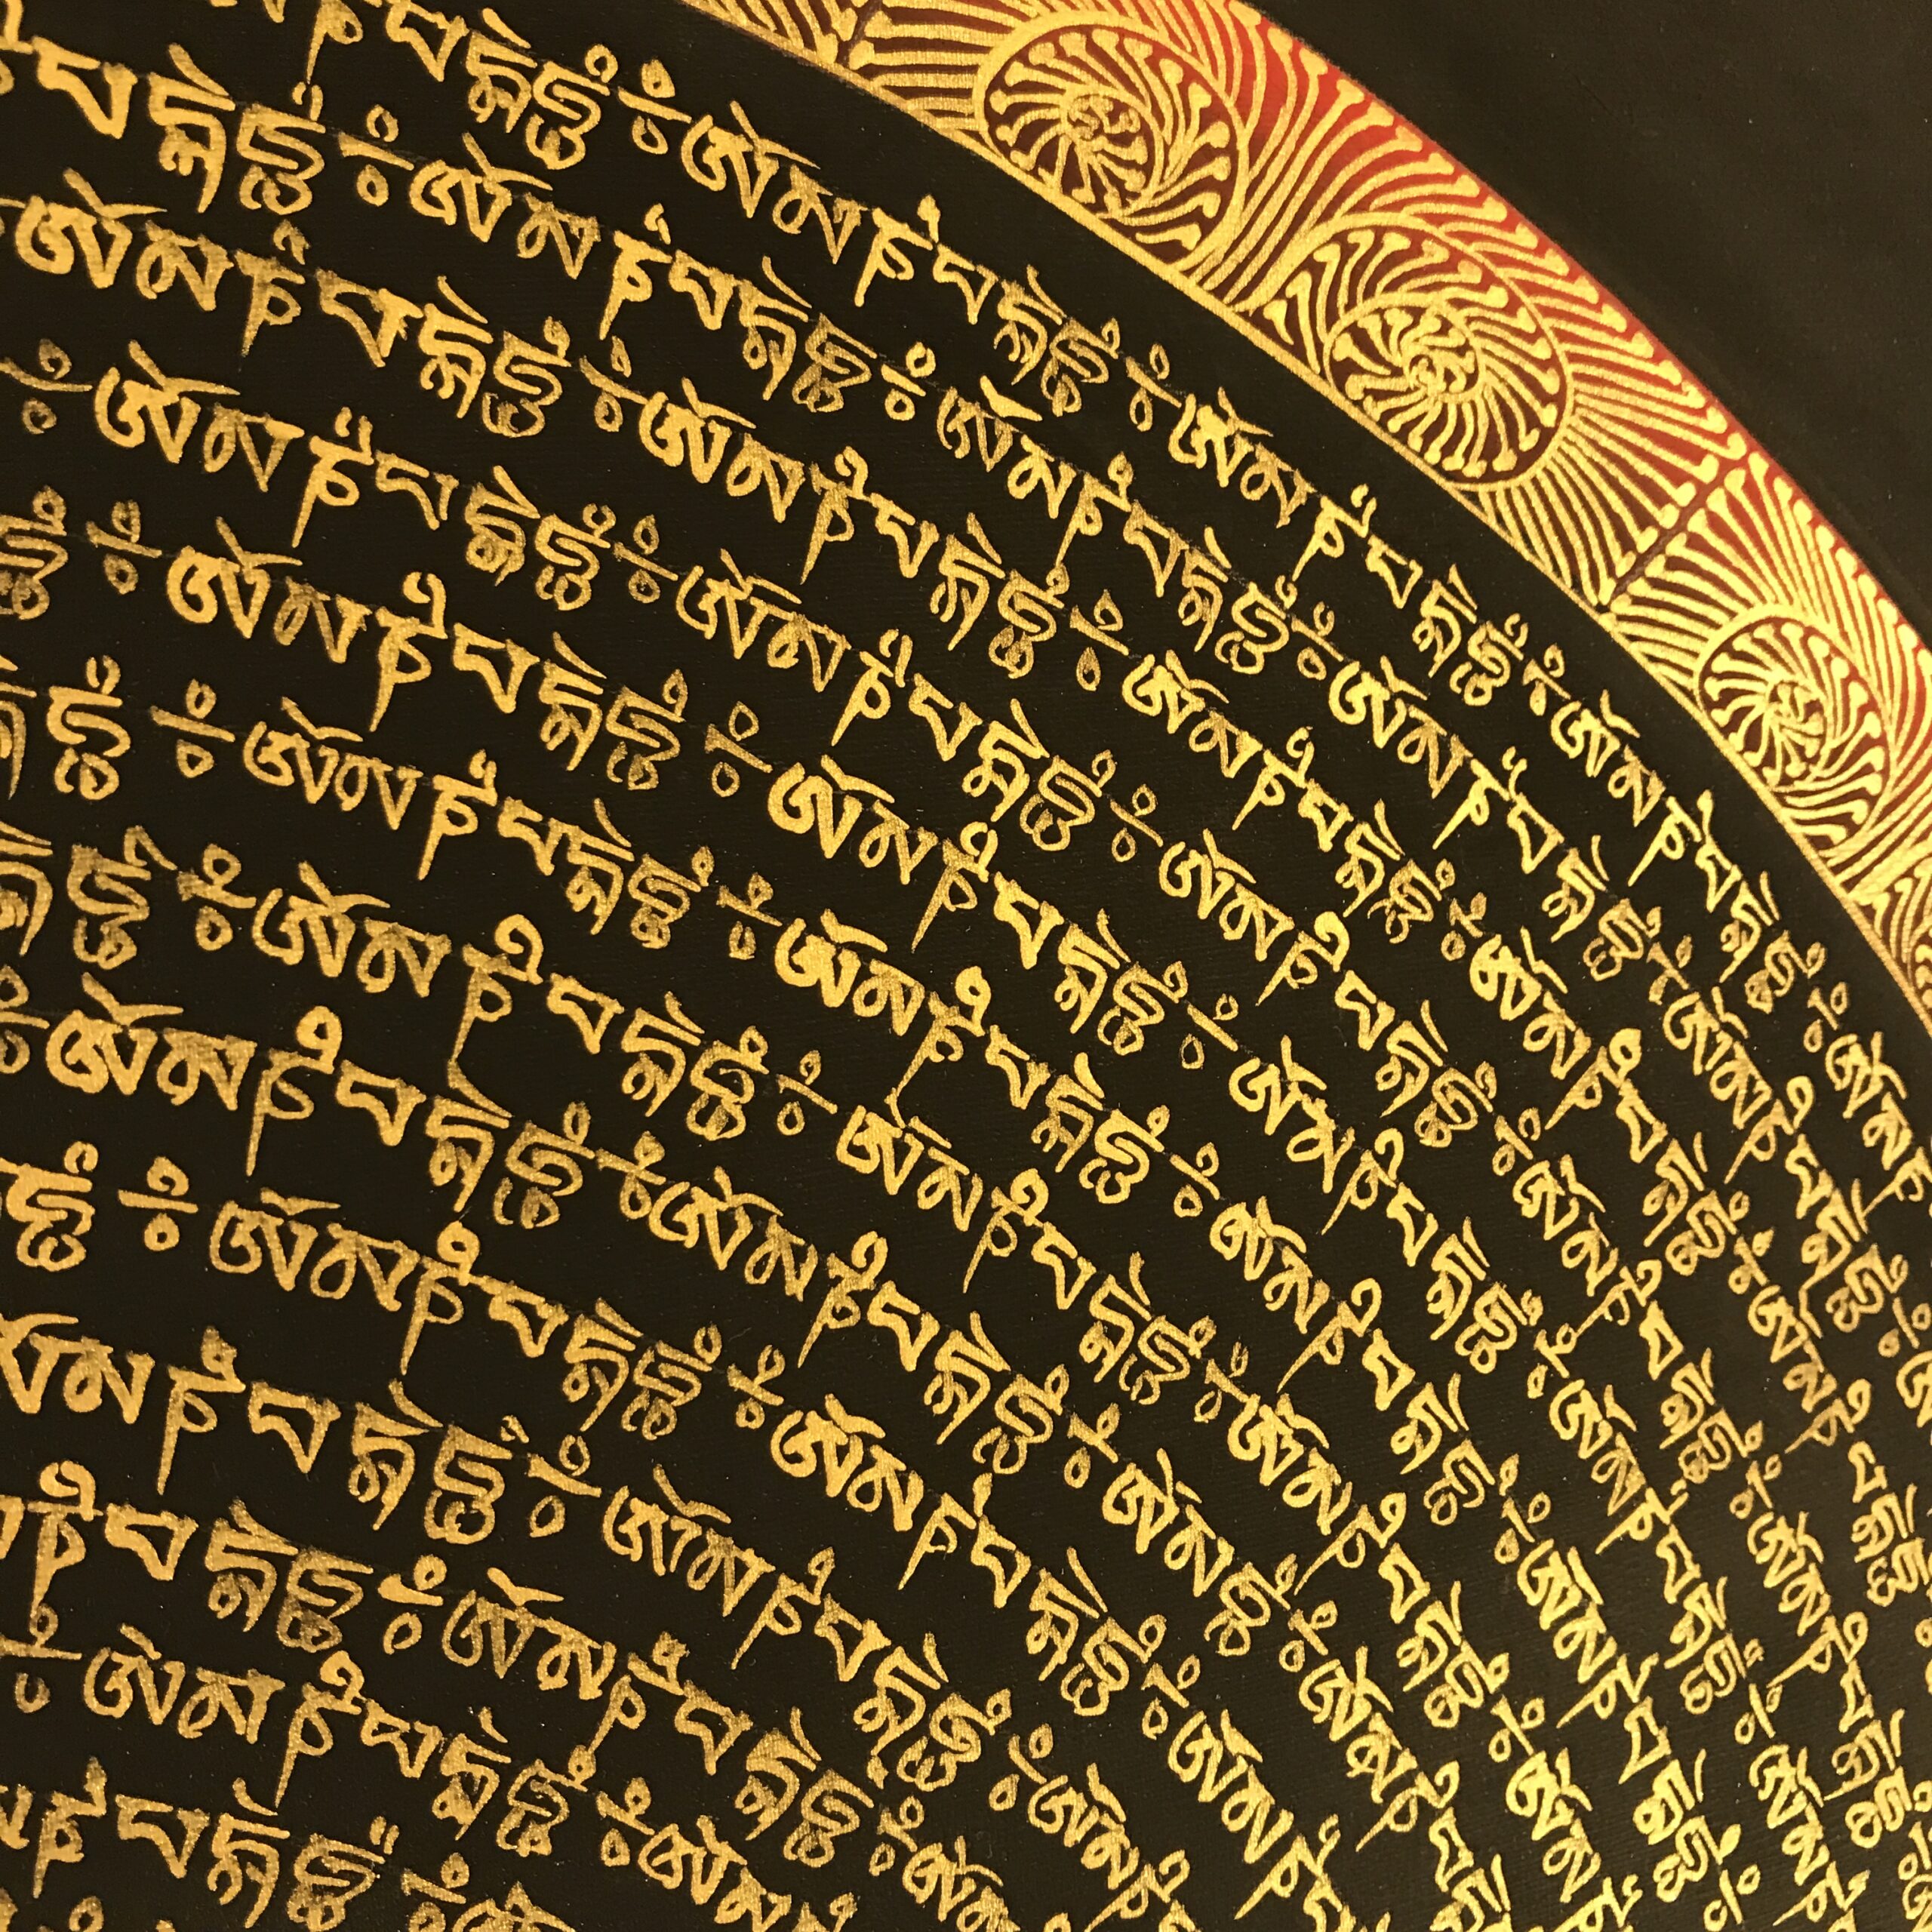 ཎིཔདྨེཧཱུྃ༔ ཨོཾམཎིཔདྨེཧཱུྃ༔ ཨོཾམཎིཔདྨེཧཱུྃ༔ ཨོཾམཎིཔདྨེཧཱུྃ༔ ཨོཾམཎི
པདྨེཧཱུྃ༔ ཨོཾམཎིཔདྨེཧཱུྃ༔ ཨོཾམཎིཔདྨེཧཱུྃ༔ ཨོཾམཎིཔདྨེཧཱུྃ༔ ཨོཾ
ཨོཾམཎིཔདྨེཧཱུྃ༔ ཨོཾམཎིཔདྨེཧཱུྃ༔ ཨོཾམཎིཔདྨེཧཱུྃ༔ ཨོཾམཎིཔདྨེཧཱུྃ༔ ཨོཾམཎིཔདྨེཧཱུྃ
༔ ཨོཾམཎིཔདྨེཧཱུྃ༔ ཨོཾམཎིཔདྨེཧཱུྃ༔ ཨོཾམཎིཔདྨེཧཱུྃ༔ ཨོཾམཎིཔདྨེཧཱུྃ༔ ཨོཾམཎིཔདྨེཧཱུྃ
ཧཱུྃ༔ ཨོཾམཎིཔདྨེཧཱུྃ༔ ཨོཾམཎིཔདྨེཧཱུྃ༔ ཨོཾམཎིཔདྨེཧཱུྃ༔ ཨོཾམཎིཔདྨེཧཱུྃ༔ ཨོཾམཎི
ཧཱུྃ༔ ཨོཾམཎིཔདྨེཧཱུྃ༔ ཨོཾམཎིཔདྨེཧཱུྃ༔ ཨོཾམཎིཔདྨེཧཱུྃ༔ ཨོཾམཎིཔདྨེཧཱུྃ༔
དྨེཧཱུྃ༔ ཨོཾམཎིཔདྨེཧཱུྃ༔ ཨོཾམཎིཔདྨེཧཱུྃ༔ ཨོཾམཎིཔདྨེཧཱུྃ༔ ཨོཾམཎི
༔ ཨོཾམཎིཔདྨེཧཱུྃ༔ ཨོཾམཎིཔདྨེཧཱུྃ༔ ཨོཾམཧཱུྃ༔ ཨོཾམཎིཔདྨེ
ཧཱུྃ༔ ཨོཾམཎིཔདྨེཧཱུྃ༔ ཨོཾམཎིཔདྨེཧཱུྃ༔ ཨོཾམཎིཔ
ཨོཾམཎིཔདྨེཧཱུྃ༔ ཨོཾམཎིཔདྨེཧཱུྃ༔ ཨོཾམཎི
མཎིཔདྨེཧཱུྃ༔ ཨོཾམཎིཔདྨེཧཱུྃ༔ ཨོཾམ
༔ ཨོཾམཎིཔདྨེཧཱུྃ༔ ཨོཾམ
མཎིཔདྨེཧཱུྃ༔ ཨོཾ